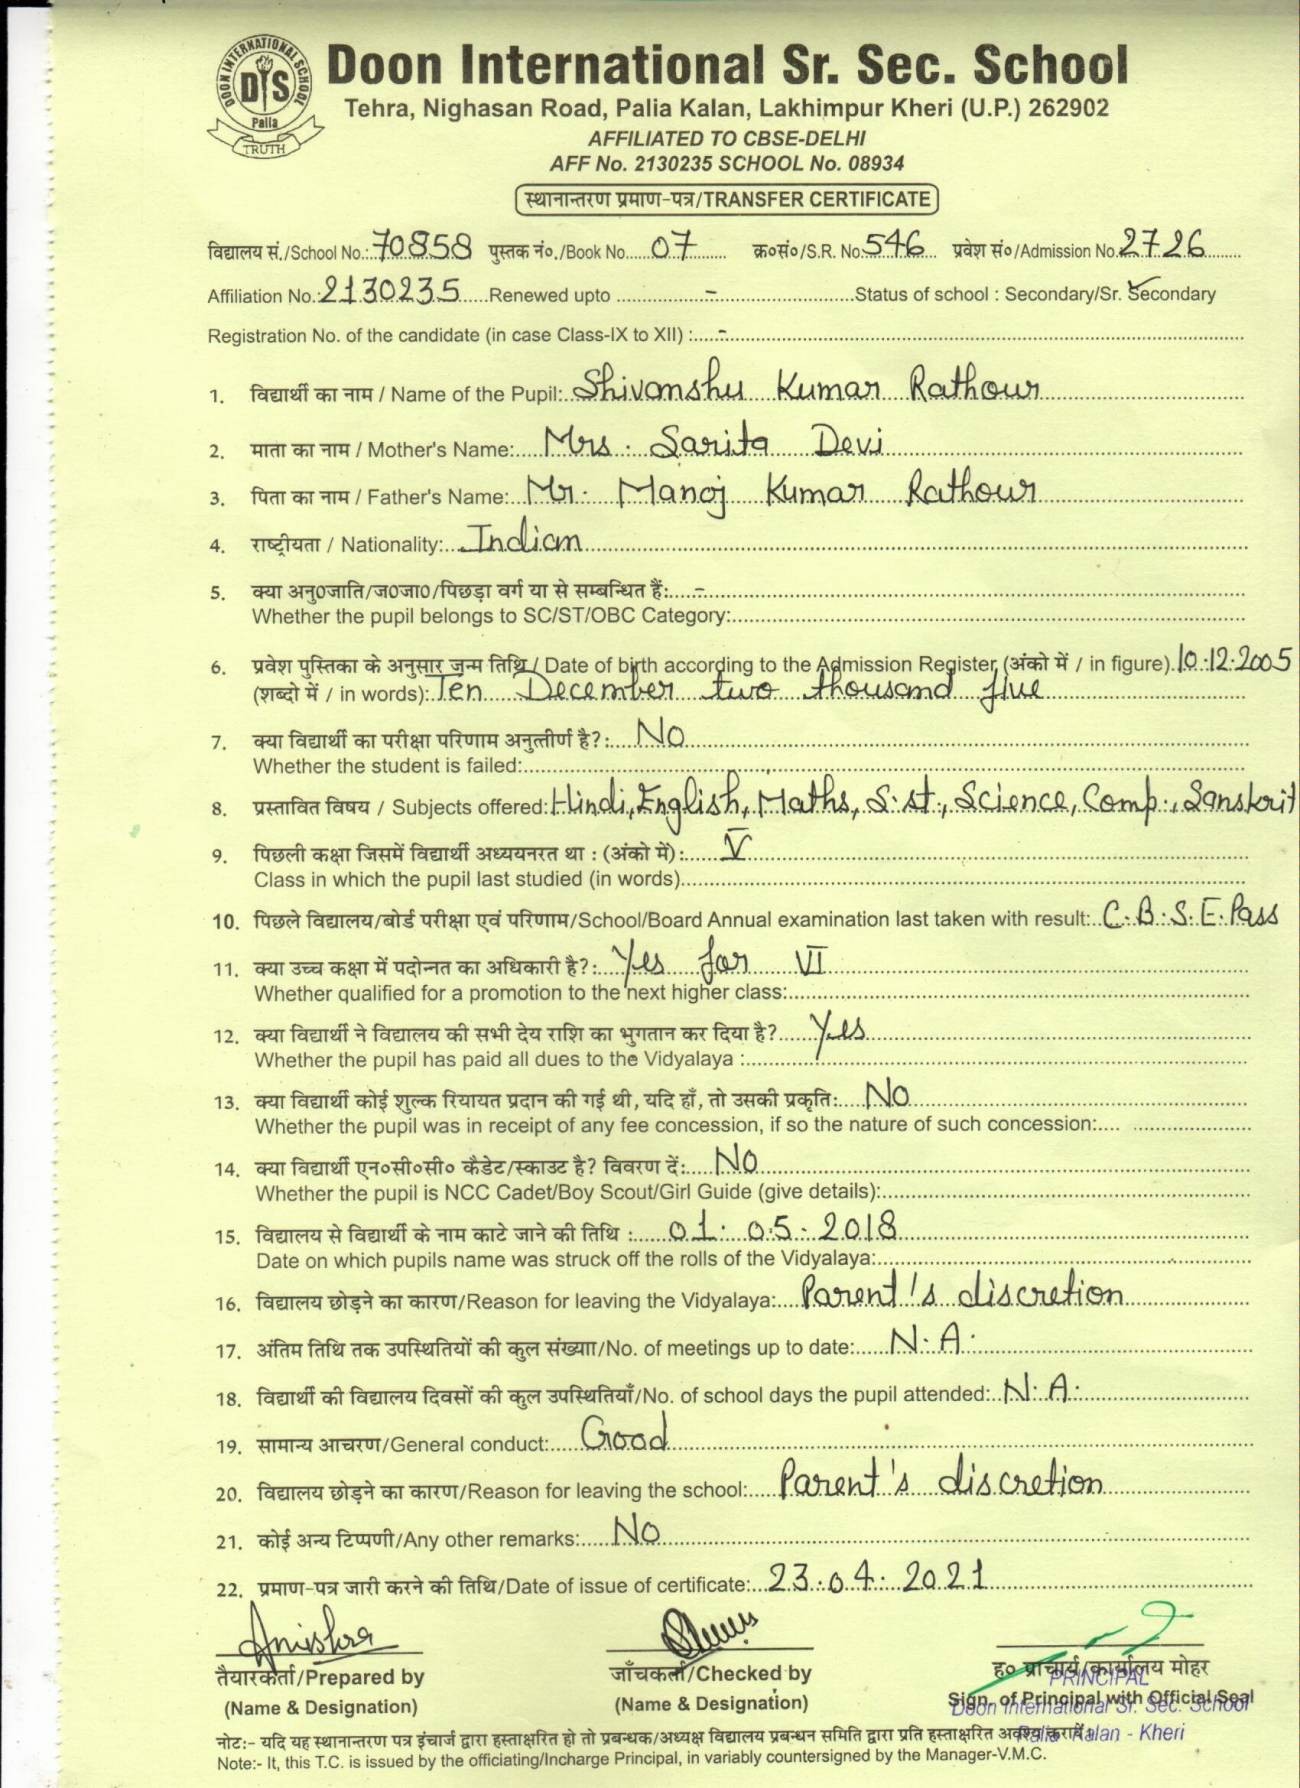 DOON INTERNATIONAL SCHOOL
DIS
Palia
TRUTH
Doon International Sr. Sec. School
Tehra, Nighasan Road, Palia Kalan, Lakhimpur Kheri (U.P.) 262902
AFFILIATED TO CBSE-DELHI
AFF No. 2130235 SCHOOL No. 08934
स्थानान्तरण प्रमाण-पत्र/TRANSFER CERTIFICATE
विद्यालय सं./School No.: 70858 पुस्तक नं०./Book No. 07 क्र०सं०/S.R. No. 546 प्रवेश सं०/Admission No. 2726
Affiliation No.: 2130235 Renewed upto - Status of school : Secondary/Sr. Secondary
Registration No. of the candidate (in case Class-IX to XII) : -
1. विद्यार्थी का नाम / Name of the Pupil: Shivanshu Kumar Rathour
2. माता का नाम / Mother's Name: Mrs. Sarita Devi
3. पिता का नाम / Father's Name: Mr. Manoj Kumar Rathour
4. राष्ट्रीयता / Nationality: Indian
5. क्या अनु0जाति/ज0जा0/पिछड़ा वर्ग या से सम्बन्धित हैं: -
Whether the pupil belongs to SC/ST/OBC Category:
6. प्रवेश पुस्तिका के अनुसार जन्म तिथि/ Date of birth according to the Admission Register (अंको में / in figure). 10.12.2005
(शब्दो में / in words): Ten December two thousand five
7. क्या विद्यार्थी का परीक्षा परिणाम अनुत्तीर्ण है?: No
Whether the student is failed:
8. प्रस्तावित विषय / Subjects offered: Hindi, English, Maths, S.st., Science, Comp., Sanskrit
9. पिछली कक्षा जिसमें विद्यार्थी अध्ययनरत था : (अंको में): V
Class in which the pupil last studied (in words)
10. पिछले विद्यालय/बोर्ड परीक्षा एवं परिणाम/School/Board Annual examination last taken with result: C.B.S.E. Pass
11. क्या उच्च कक्षा में पदोन्नत का अधिकारी है?: Yes for VI
Whether qualified for a promotion to the next higher class:
12. क्या विद्यार्थी ने विद्यालय की सभी देय राशि का भुगतान कर दिया है? Yes
Whether the pupil has paid all dues to the Vidyalaya :
13. क्या विद्यार्थी कोई शुल्क रियायत प्रदान की गई थी, यदि हाँ, तो उसकी प्रकृति: No
Whether the pupil was in receipt of any fee concession, if so the nature of such concession:
14. क्या विद्यार्थी एन०सी०सी० कैडेट/स्काउट है? विवरण दें: No
Whether the pupil is NCC Cadet/Boy Scout/Girl Guide (give details):
15. विद्यालय से विद्यार्थी के नाम काटे जाने की तिथि : 01.05.2018
Date on which pupils name was struck off the rolls of the Vidyalaya:
16. विद्यालय छोड़ने का कारण/Reason for leaving the Vidyalaya: Parent's discretion
17. अंतिम तिथि तक उपस्थितियों की कुल संख्या/No. of meetings up to date: N.A.
18. विद्यार्थी की विद्यालय दिवसों की कुल उपस्थितियाँ/No. of school days the pupil attended: N.A.
19. सामान्य आचरण/General conduct: Good
20. विद्यालय छोड़ने का कारण/Reason for leaving the school: Parent's discretion
21. कोई अन्य टिप्पणी/Any other remarks: No
22. प्रमाण-पत्र जारी करने की तिथि/Date of issue of certificate: 23.04.2021
तैयारकर्ता/Prepared by जाँचकर्ता/Checked by ह० प्राचार्य/कार्यालय मोहर
PRINCIPAL
(Name & Designation) (Name & Designation) Sign. of Principal with Official Seal
Doon International Sr. Sec. School
Palia Kalan - Kheri
नोट:- यदि यह स्थानान्तरण पत्र इंचार्ज द्वारा हस्ताक्षरित हो तो प्रबन्धक/अध्यक्ष विद्यालय प्रबन्धन समिति द्वारा प्रति हस्ताक्षरित अवश्य करायें।
Note:- It, this T.C. is issued by the officiating/Incharge Principal, in variably countersigned by the Manager-V.M.C.